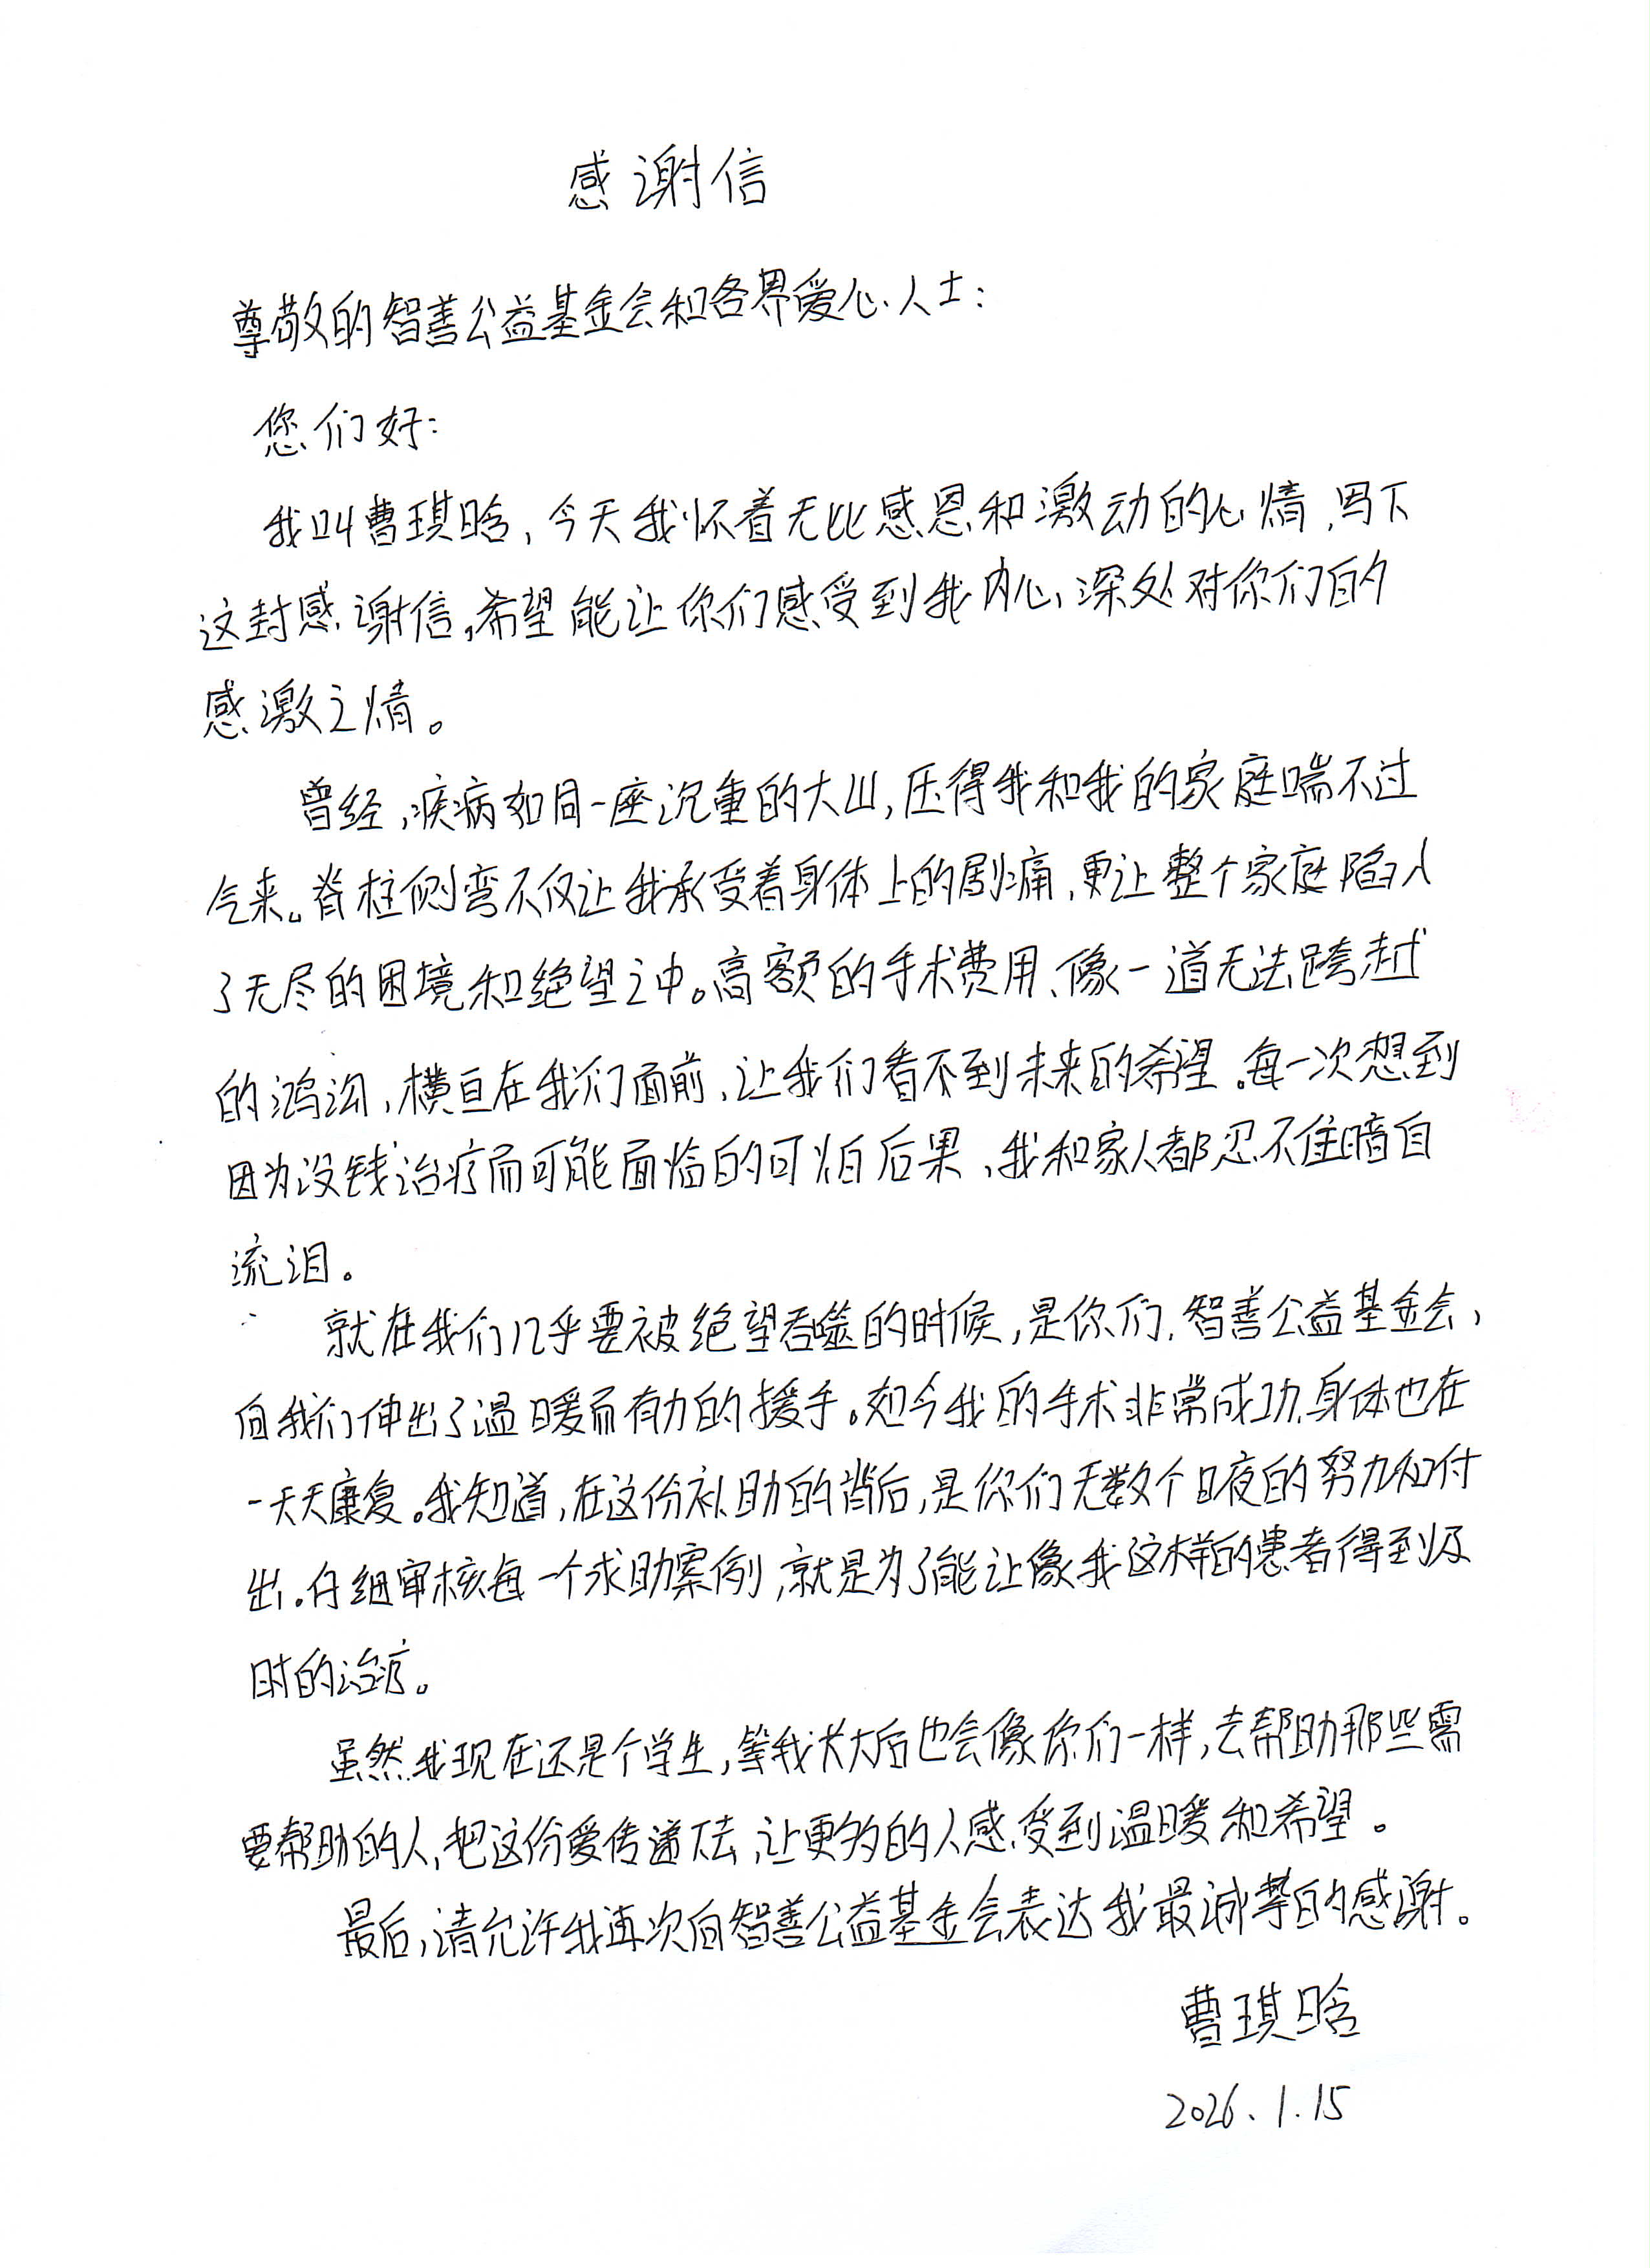 感谢信
尊敬的智善公益基金会和各界爱心人士：
您们好：
我叫曹琪晗，今天我怀着无比感恩和激动的心情，写下
这封感谢信，希望能让你们感受到我内心深处对你们的
感激之情。
曾经，疾病如同一座沉重的大山，压得我和我的家庭喘不过
气来。脊柱侧弯不仅让我承受着身体上的剧痛，更让整个家庭陷入
了无尽的困境和绝望之中。高额的手术费用、像一道无法跨越
的鸿沟，横亘在我们面前，让我们看不到未来的希望。每一次想到
因为没钱治疗而可能面临的可怕后果，我和家人都忍不住暗自
流泪。
就在我们几乎要被绝望吞噬的时候，是你们，智善公益基金会，
向我们伸出了温暖而有力的援手。如今我的手术非常成功，身体也在
一天天康复。我知道，在这份补助的背后，是你们无数个日夜的努力和付
出。仔细审核每一个求助案例，就是为了能让像我这样的患者得到及
时的治疗。
虽然我现在还是个学生，等我长大后也会像你们一样，去帮助那些需
要帮助的人，把这份爱传递下去，让更多的人感受到温暖和希望。
最后，请允许我再次向智善公益基金会表达我最诚挚的感谢。
曹琪晗
2026.1.15